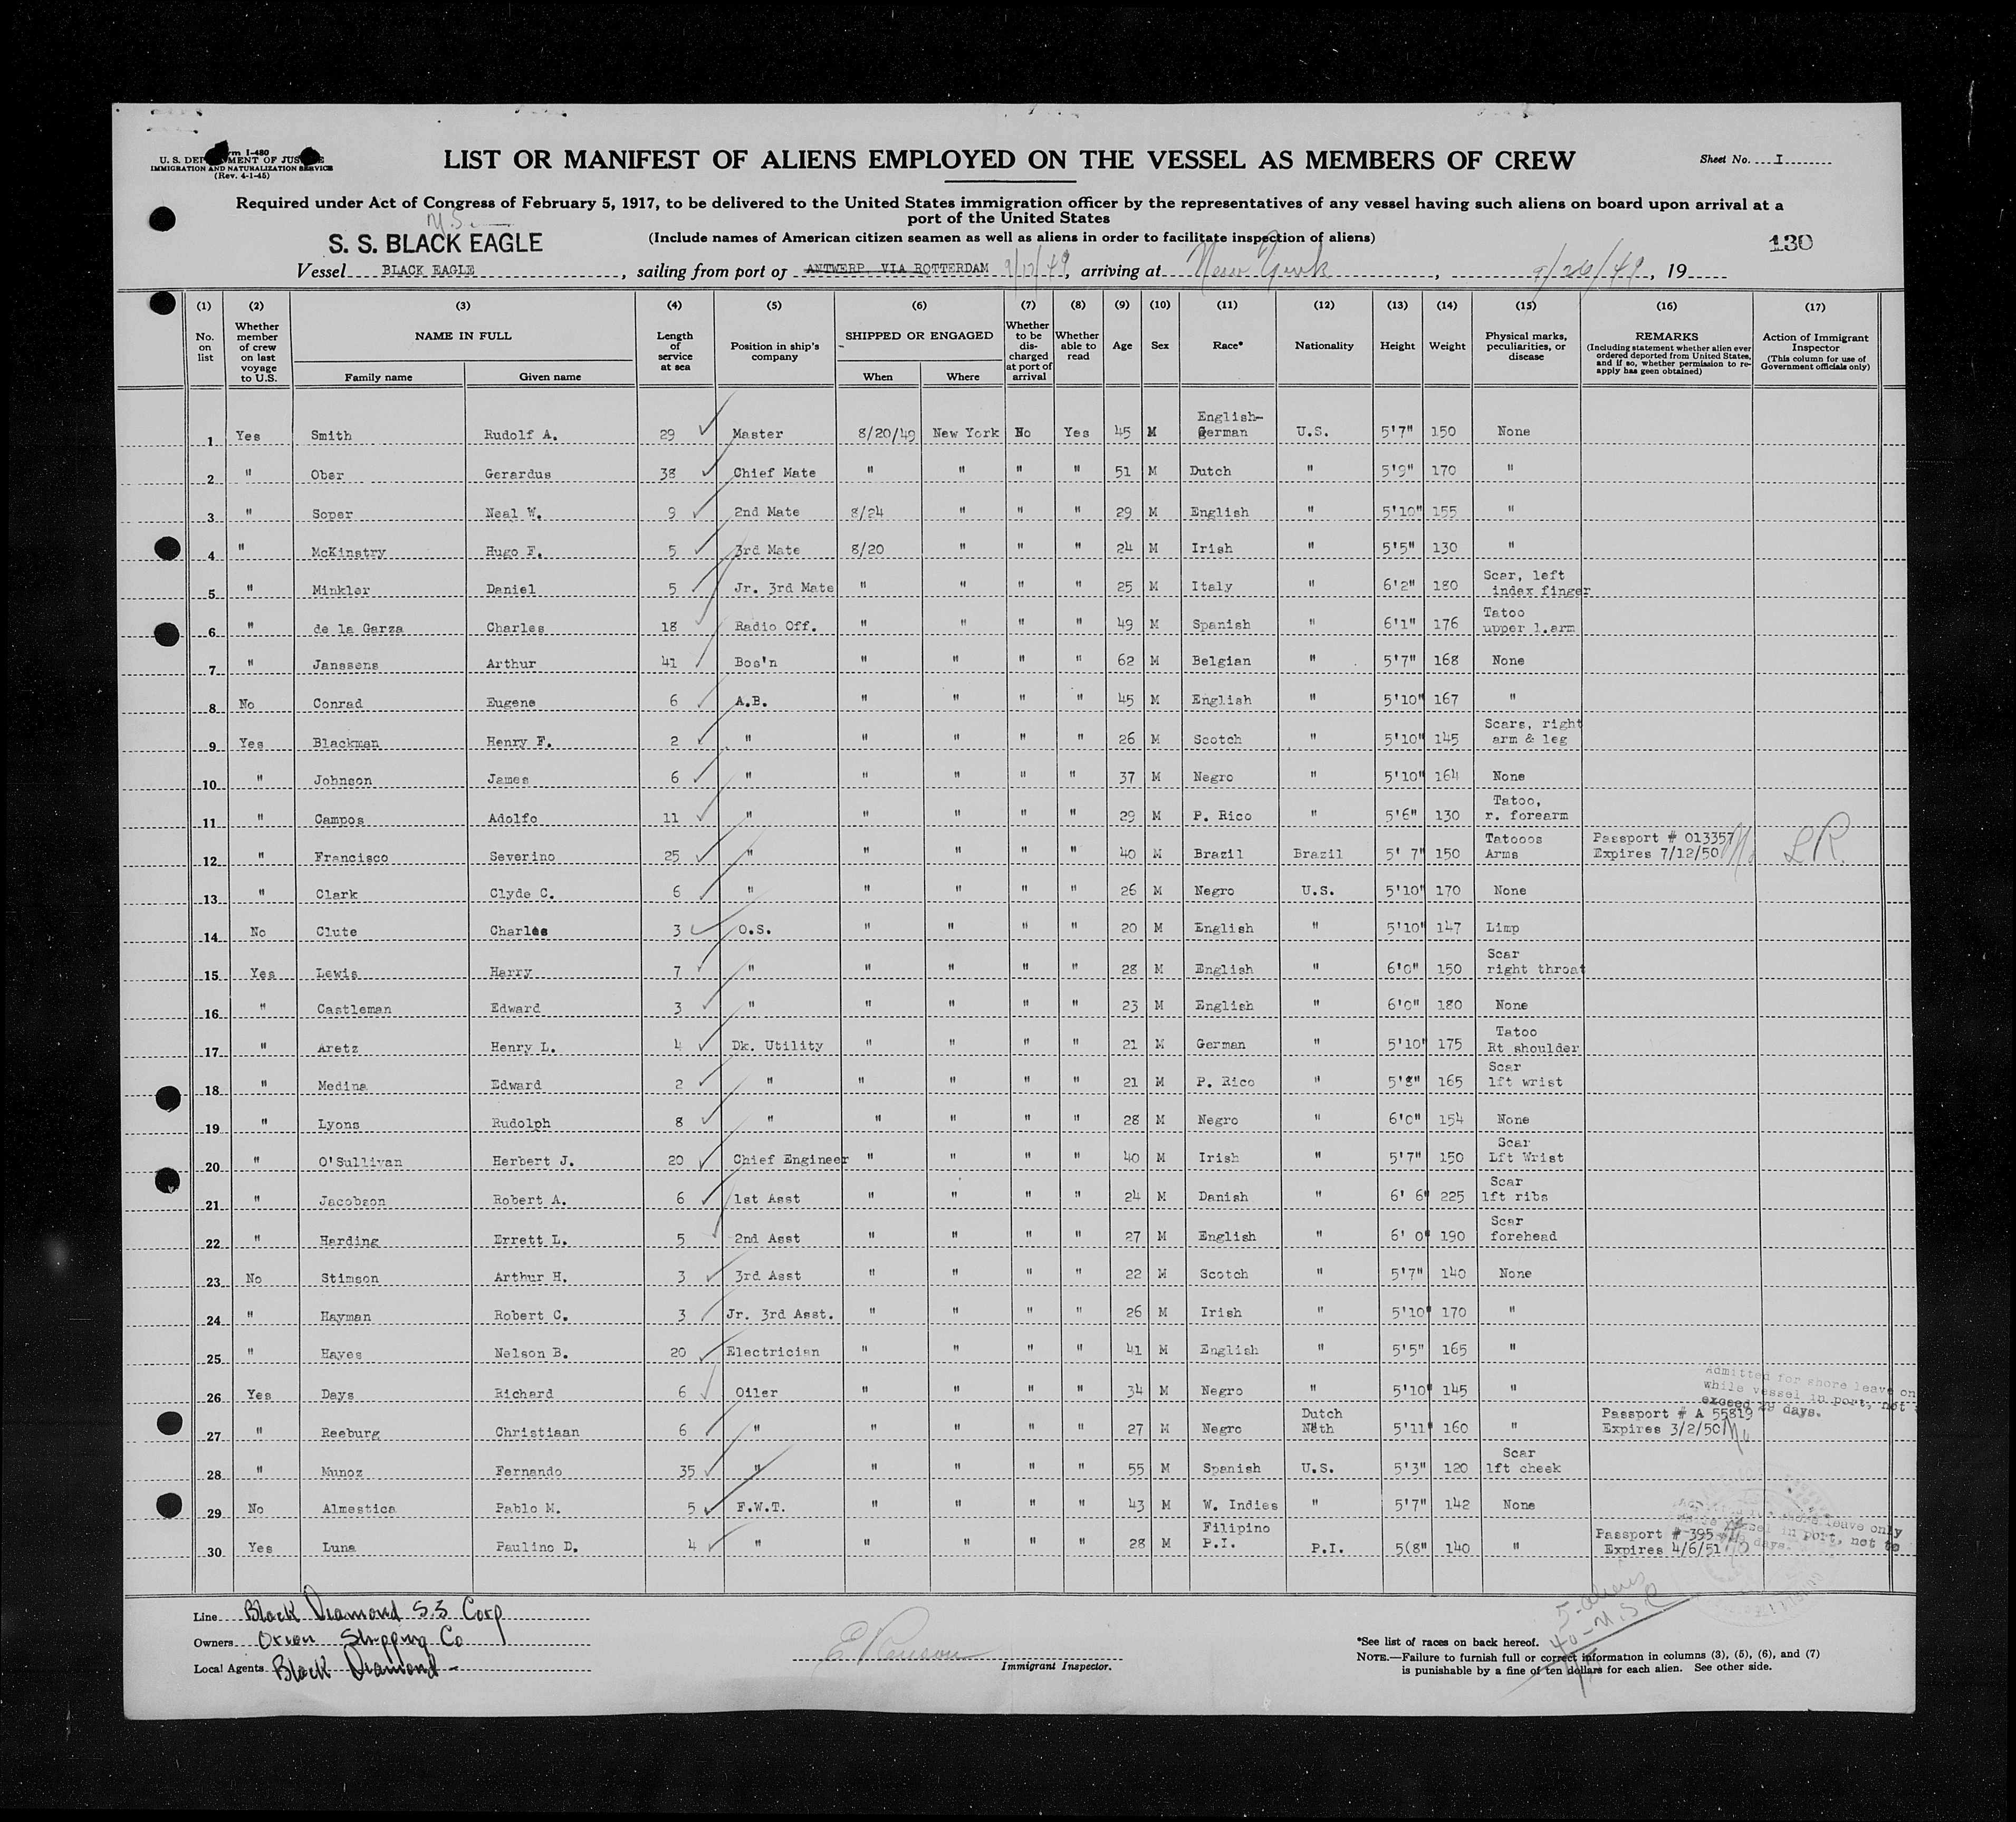 Form I-480
U. S. DEPARTMENT OF JUSTICE
IMMIGRATION AND NATURALIZATION SERVICE
(Rev. 4-1-45)
LIST OR MANIFEST OF ALIENS EMPLOYED ON THE VESSEL AS MEMBERS OF CREW
Sheet No. I
Required under Act of Congress of February 5, 1917, to be delivered to the United States immigration officer by the representatives of any vessel having such aliens on board upon arrival at a
port of the United States
M.S.
S. S. BLACK EAGLE
(Include names of American citizen seamen as well as aliens in order to facilitate inspection of aliens)
130
Vessel BLACK EAGLE, sailing from port of ANTWERP VIA ROTTERDAM 9/17/49, arriving at New York, 9/26/49, 19
(1) (2) (3) (4) (5) (6) (7) (8) (9) (10) (11) (12) (13) (14) (15) (16) (17)
No. on list
Whether member of crew on last voyage to U.S.
NAME IN FULL
Family name Given name
Length of service at sea
Position in ship's company
SHIPPED OR ENGAGED
When Where
Whether to be discharged at port of arrival
Whether able to read
Age Sex Race* Nationality Height Weight
Physical marks, peculiarities, or disease
REMARKS
(Including statement whether alien ever ordered deported from United States, and if so, whether permission to re-apply has geen obtained)
Action of Immigrant Inspector
(This column for use of Government officials only)
1 Yes Smith Rudolf A. 29 Master 8/20/49 New York No Yes 45 M English-German U.S. 5'7" 150 None
2 " Ober Gerardus 38 Chief Mate " " " " 51 M Dutch " 5'9" 170 "
3 " Soper Neal W. 9 2nd Mate 8/24 " " " 29 M English " 5'10" 155 "
4 " McKinstry Hugo F. 5 3rd Mate 8/20 " " " 24 M Irish " 5'5" 130 "
5 " Minkler Daniel 5 Jr. 3rd Mate " " " " 25 M Italy " 6'2" 180 Scar, left index finger
6 " de la Garza Charles 18 Radio Off. " " " " 49 M Spanish " 6'1" 176 Tatoo upper l.arm
7 " Janssens Arthur 41 Bos'n " " " " 62 M Belgian " 5'7" 168 None
8 No Conrad Eugene 6 A.B. " " " " 45 M English " 5'10" 167 "
9 Yes Blackman Henry F. 2 " " " " " 26 M Scotch " 5'10" 145 Scars, right arm & leg
10 " Johnson James 6 " " " " " 37 M Negro " 5'10" 164 None
11 " Campos Adolfo 11 " " " " " 29 M P. Rico " 5'6" 130 Tatoo, r. forearm
12 " Francisco Severino 25 " " " " " 40 M Brazil Brazil 5' 7" 150 Tatooos Arms Passport # 013357 Expires 7/12/50 LR.
13 " Clark Clyde C. 6 " " " " " 26 M Negro U.S. 5'10" 170 None
14 No Clute Charles 3 O.S. " " " " 20 M English " 5'10" 147 Limp
15 Yes Lewis Harry 7 " " " " " 28 M English " 6'0" 150 Scar right throat
16 " Castleman Edward 3 " " " " " 23 M English " 6'0" 180 None
17 " Aretz Henry L. 4 Dk. Utility " " " " 21 M German " 5'10" 175 Tatoo Rt shoulder
18 " Medina Edward 2 " " " " " 21 M P. Rico " 5'8" 165 Scar lft wrist
19 " Lyons Rudolph 8 " " " " " 28 M Negro " 6'0" 154 None
20 " O'Sullivan Herbert J. 20 Chief Engineer " " " " 40 M Irish " 5'7" 150 Scar Lft Wrist
21 " Jacobson Robert A. 6 1st Asst " " " " 24 M Danish " 6' 6" 225 Scar lft ribs
22 " Harding Errett L. 5 2nd Asst " " " " 27 M English " 6' 0" 190 Scar forehead
23 No Stimson Arthur H. 3 3rd Asst " " " " 22 M Scotch " 5'7" 140 None
24 " Hayman Robert C. 3 Jr. 3rd Asst. " " " " 26 M Irish " 5'10" 170 "
25 " Hayes Nelson B. 20 Electrician " " " " 41 M English " 5'5" 165 "
26 Yes Days Richard 6 Oiler " " " " 34 M Negro " 5'10" 145 "
Admitted for shore leave on
while vessel in port, not
exceed 29 days.
27 " Reeburg Christiaan 6 " " " " " 27 M Negro Dutch Neth 5'11" 160 " Passport # A 55819 Expires 3/2/50
28 " Munoz Fernando 35 " " " " " 55 M Spanish U.S. 5'3" 120 Scar lft cheek
29 No Almestica Pablo M. 5 F.W.T. " " " " 43 M W. Indies " 5'7" 142 None
30 Yes Luna Paulino D. 4 " " " " " 28 M Filipino P.I. P.I. 5(8" 140 " Passport # 395 Expires 4/6/51
shore leave only
in port, not to
days.
5-aliens
40-U.S.C
Line Black Diamond S.S Corp
Owners Orion Shipping Co
Local Agents Black Diamond
Immigrant Inspector.
*See list of races on back hereof.
NOTE.—Failure to furnish full or correct information in columns (3), (5), (6), and (7)
is punishable by a fine of ten dollars for each alien. See other side.